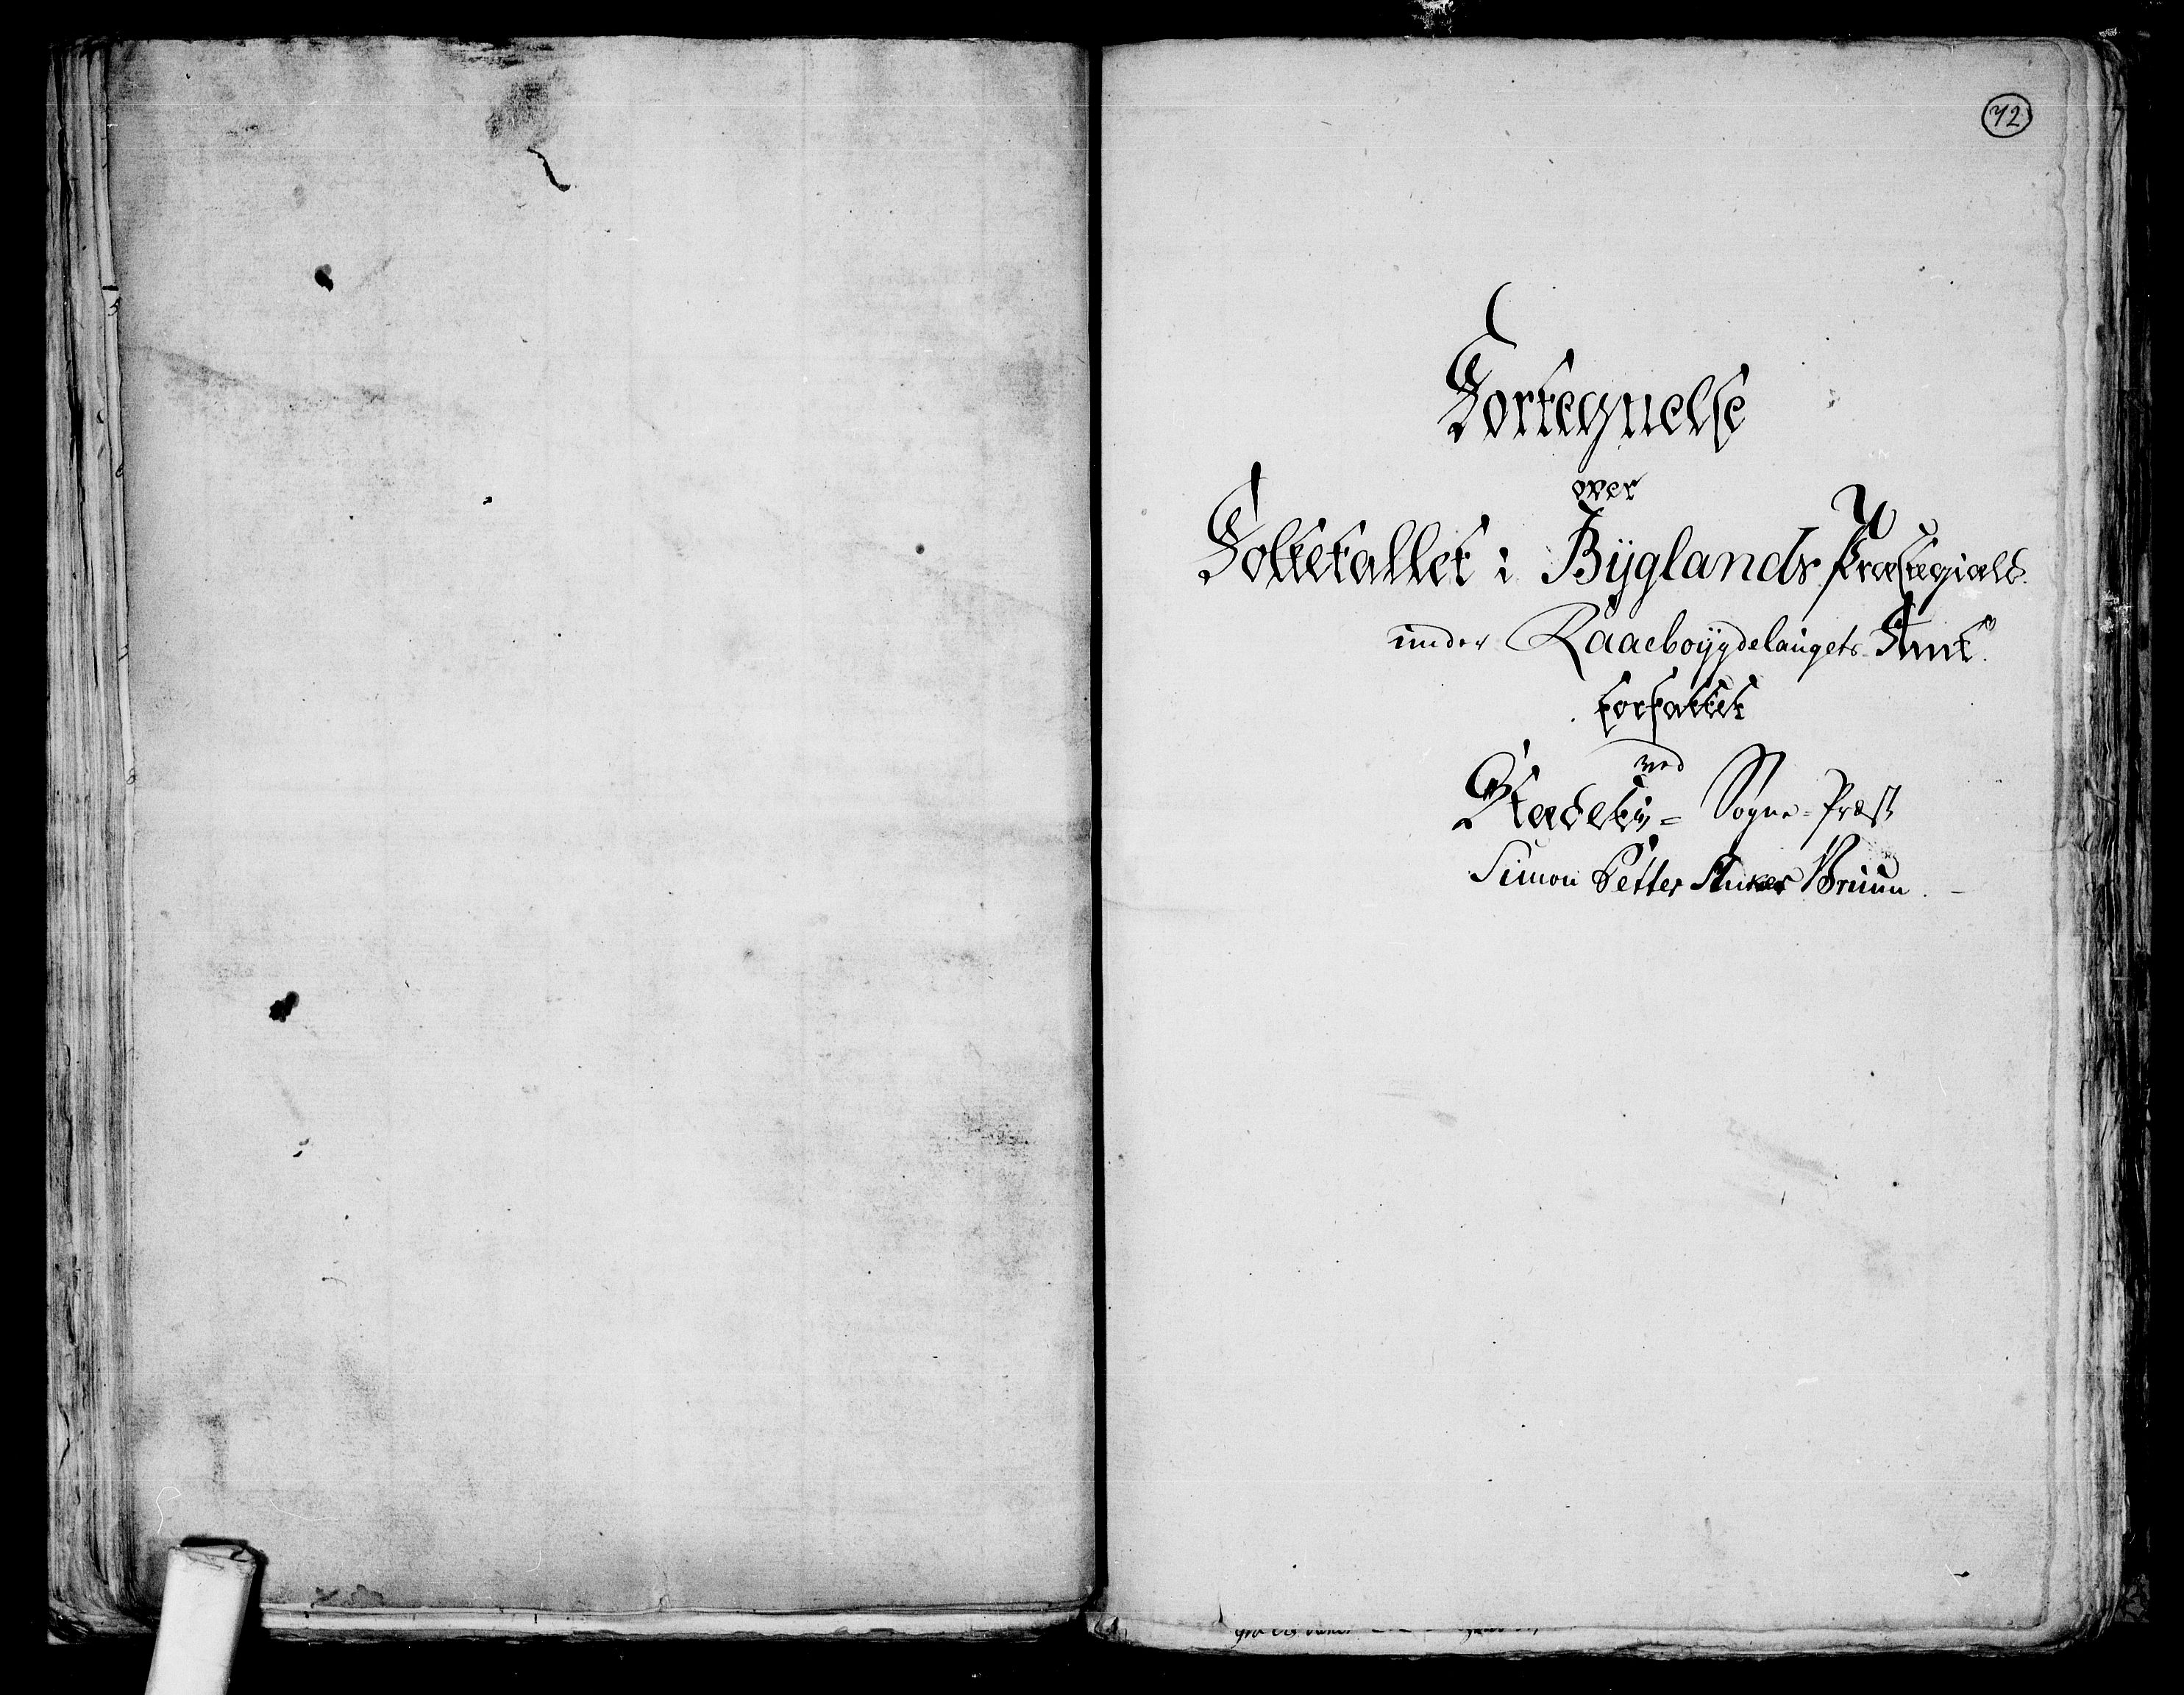 72
Fortegnelse
over
Folketallet i Bÿglands Præstegield.
under Raaeboÿgdelaugets Amt.
forfattet
ved
Stædets Sogne-Præst
Simon Petter Bruun.